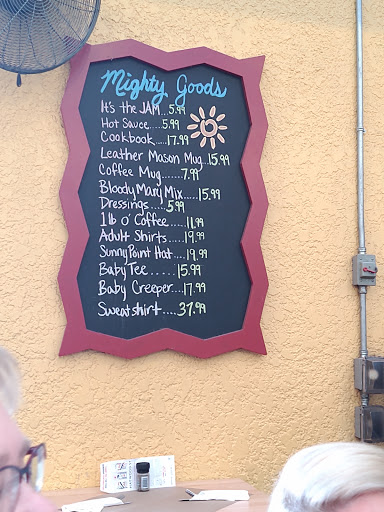 Mighty Goods
It's the JAM...5.99
Hot Sauce....5.99
Cookbook.....17.99
Leather Mason Mug...15.99
Coffee Mug......7.99
Bloody Mary Mix.....15.99
Dressings.....5.99
1 lb o' Coffee.....11.99
Adult Shirts....19.99
Sunny Point Hat....19.99
Baby Tee.....15.99
Baby Creeper...17.99
Sweatshirt....37.99